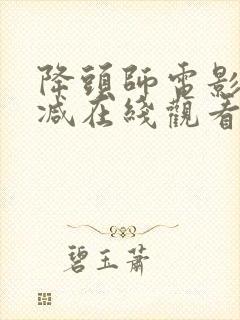 降頭師電影
减在綫觀看
碧玉蕭